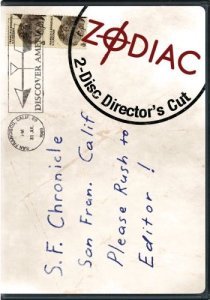 ZODIAC
2-Disc Director's Cut
DISCOVER AMERICA
SAN FRANCISCO, CALIF
PM
S.F. Chronicle
San Fran. Calif
Please Rush to
Editor!